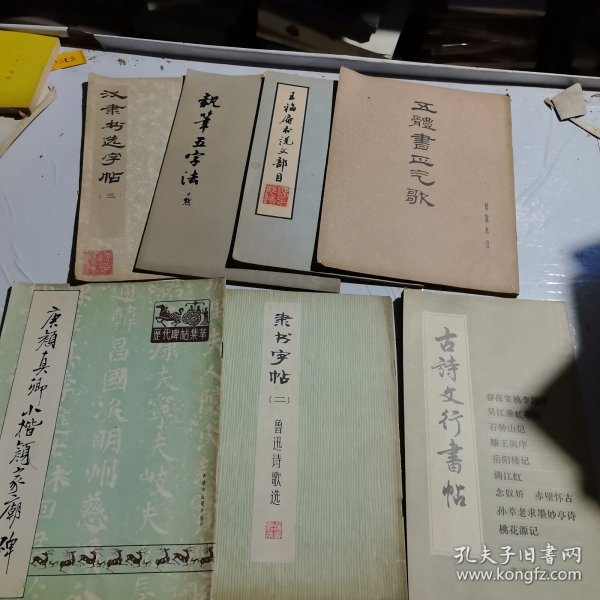 汉隶书选字帖
（三）
执笔五字法
王福厂书说文部目
五體書正气歌
唐颜真卿小楷颜家庙碑
歷代碑帖集萃
隶书字帖
（二）
鲁迅诗歌选
古诗文行書帖
春夜宴桃李園
吴江垂虹
石钟山记
滕王阁序
岳阳楼记
满江红
念奴娇 赤壁怀古
孙莘老求墨妙亭诗
桃花源记
孔夫子旧书网
www.kongfz.com